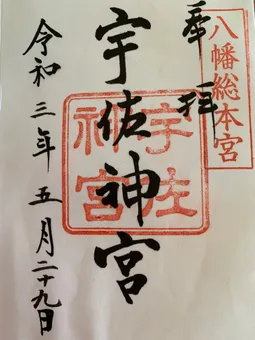 八幡総本宮
奉拝
宇佐神宮
宇佐神宮
令和三年五月二十九日